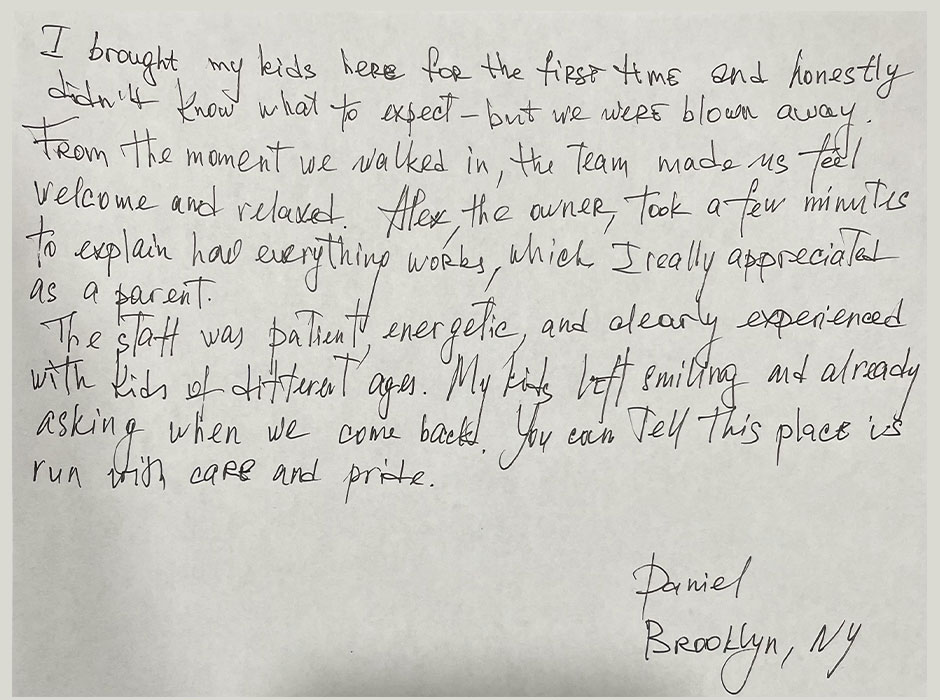 I brought my kids here for the first time and honestly
didn't know what to expect - but we were blown away.
From the moment we walked in, the team made us feel
welcome and relaxed. Alex, the owner, took a few minutes
to explain how everything works, which I really appreciated
as a parent.
The staff was patient, energetic, and clearly experienced
with kids of different ages. My kids left smiling and already
asking when we come back. You can tell this place is
run with care and pride.
Daniel
Brooklyn, NY